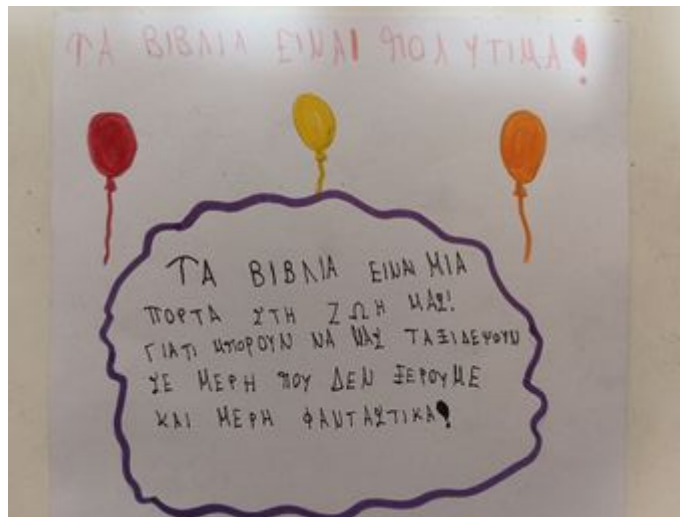 ΤΑ ΒΙΒΛΙΑ ΕΙΝΑΙ ΠΟΛΥΤΙΜΑ!
ΤΑ ΒΙΒΛΙΑ ΕΙΝΑΙ ΜΙΑ
ΠΟΡΤΑ ΣΤΗ ΖΩΗ ΜΑΣ!
ΓΙΑΤΙ ΜΠΟΡΟΥΝ ΝΑ ΜΑΣ ΤΑΞΙΔΕΨΟΥΝ
ΣΕ ΜΕΡΗ ΠΟΥ ΔΕΝ ΞΕΡΟΥΜΕ
ΚΑΙ ΜΕΡΗ ΦΑΝΤΑΣΤΙΚΑ!